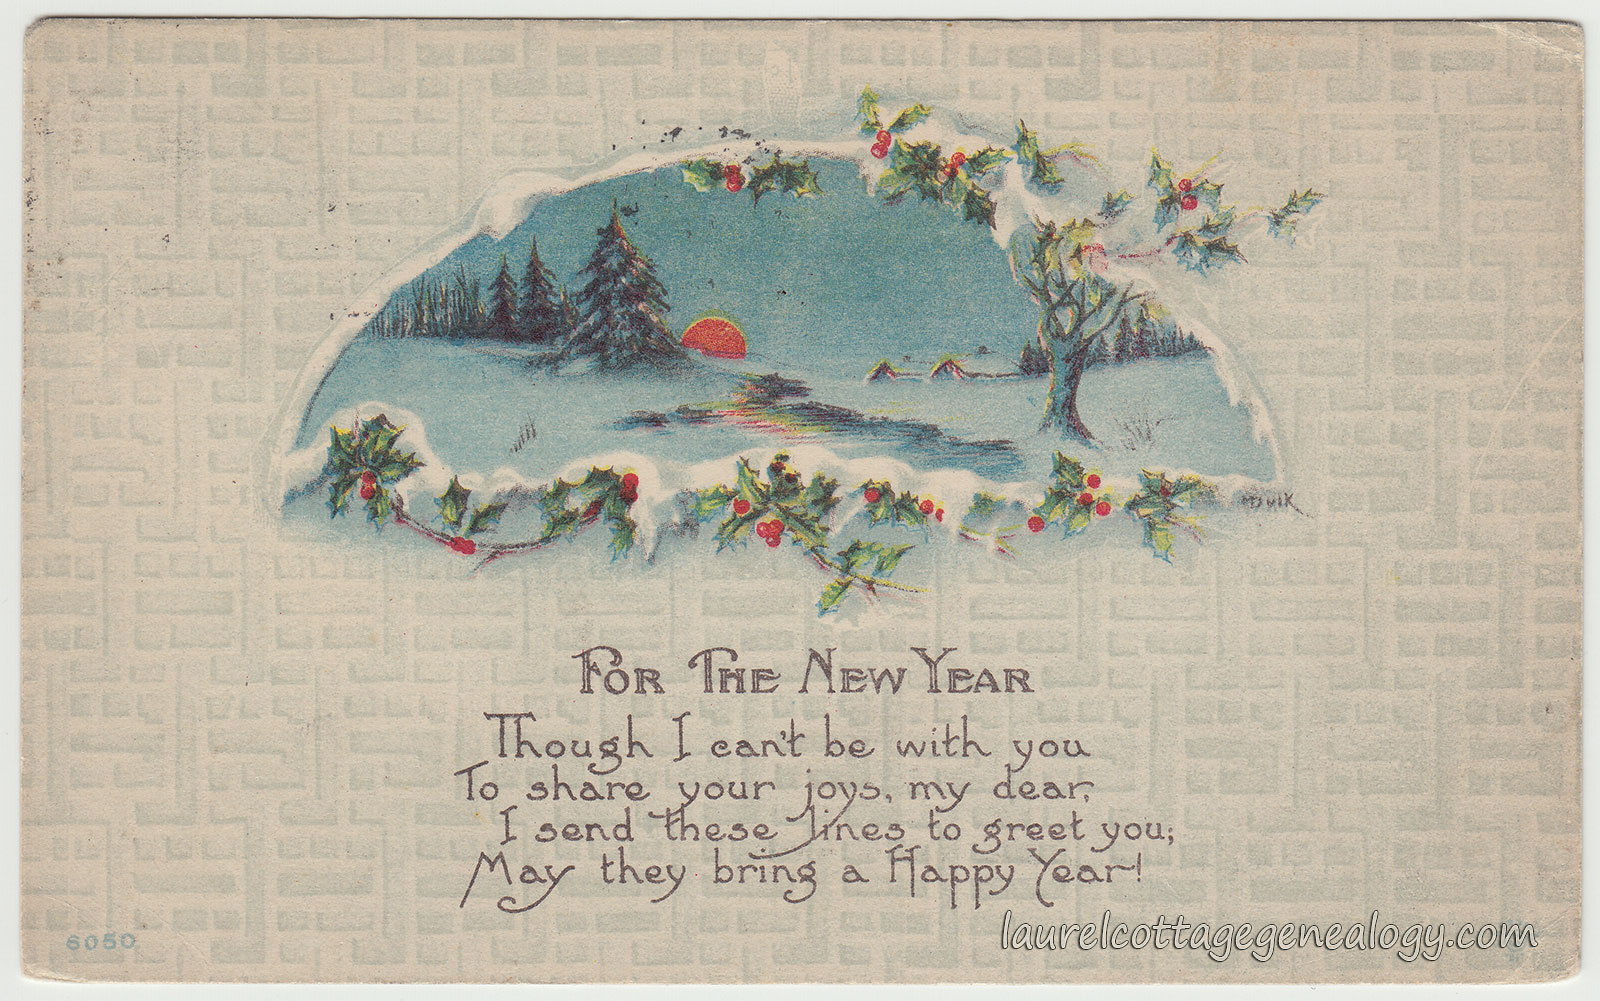 FOR THE NEW YEAR
Though I can't be with you
To share your joys, my dear,
I send these lines to greet you;
May they bring a Happy Year!
6050
laurelcottagegenealogy.com